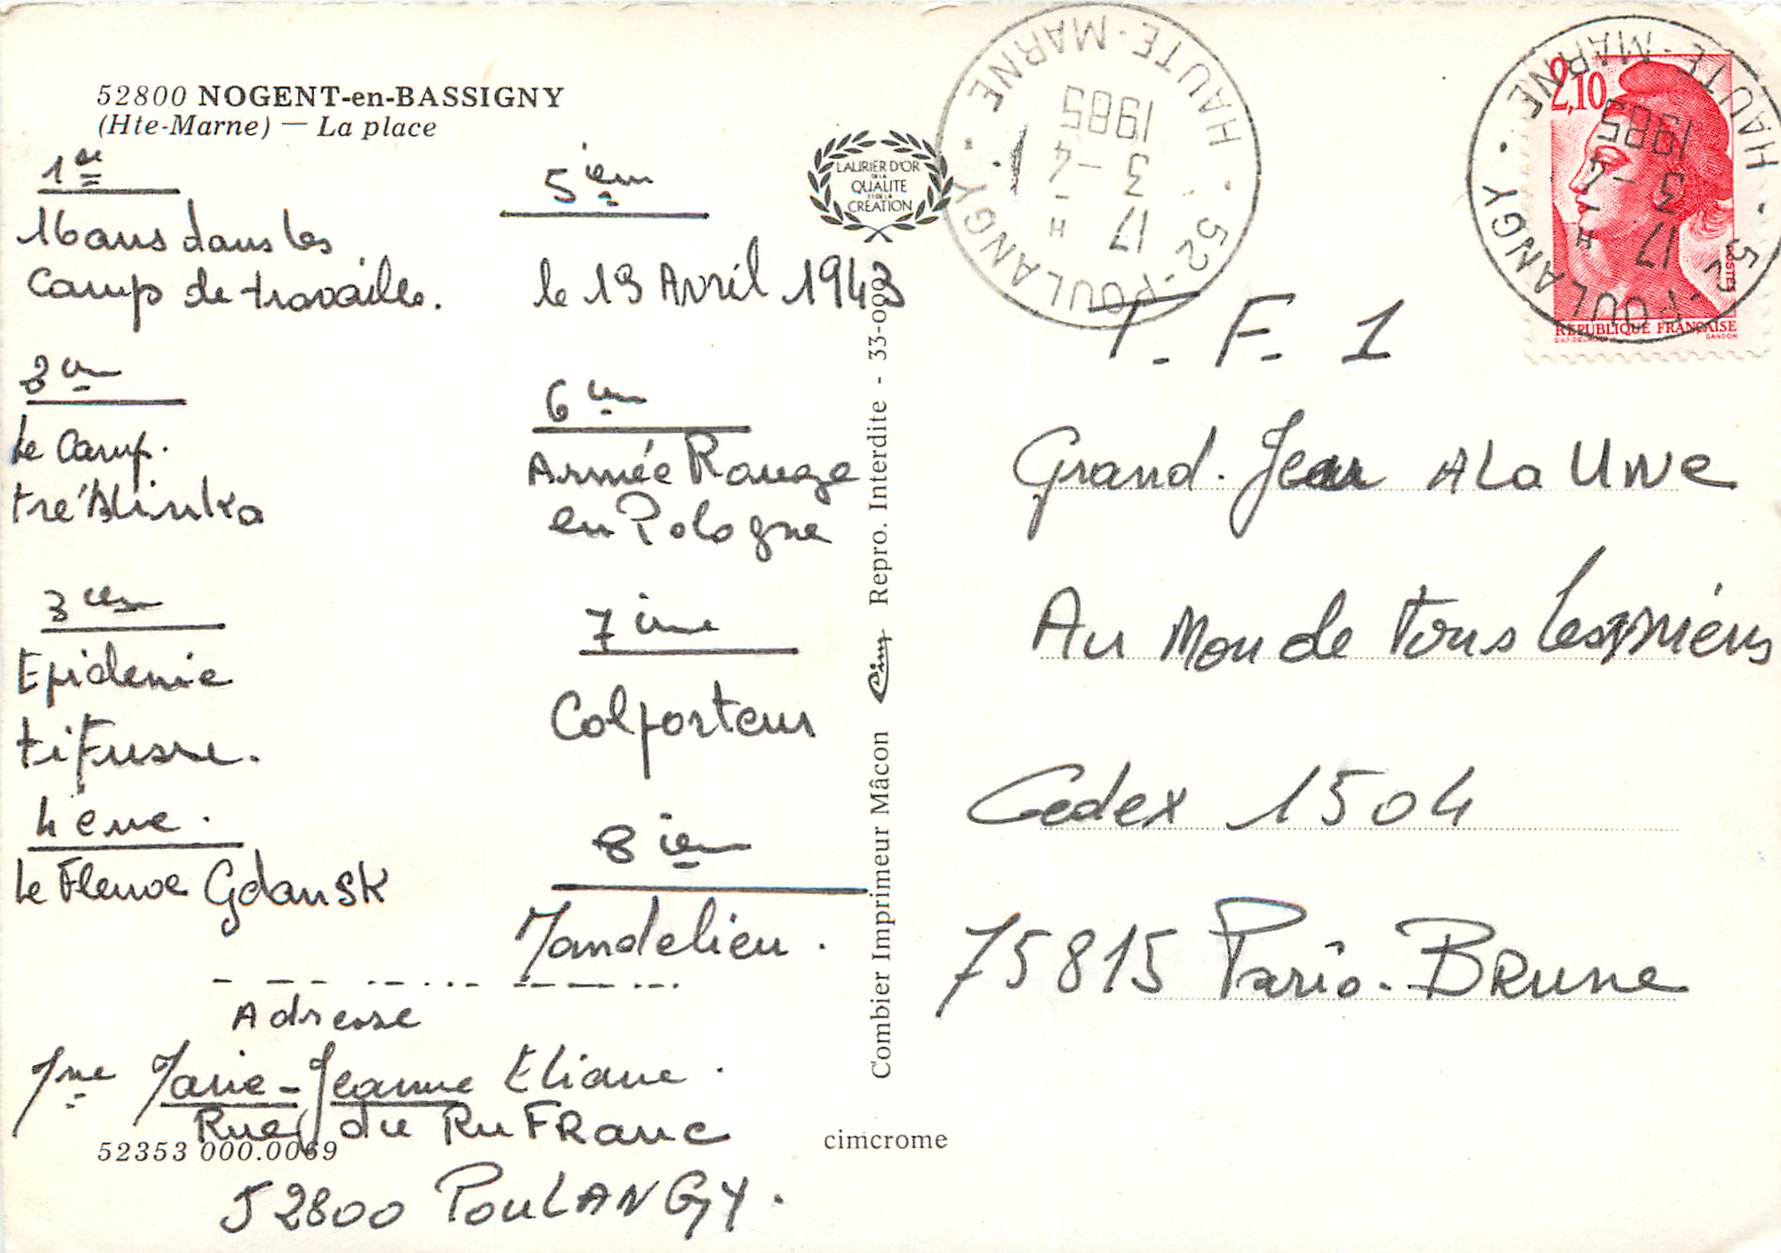 52800 NOGENT-en-BASSIGNY
(Hte-Marne) — La place
1re
16 ans dans les
Camp de travaille.
2em
Le Camp.
tré'blinka
3iem
Epidemie
tifusse.
4eme.
Le Fleuve Gdansk
5iem
le 19 Avril 1943
6iem
Armée Rouge
en Pologne
7ime
Colporteur
8iem
Mandelieu.
Adresse
Mme Marie-Jeanne Eliane.
Rue du Ru FRanc
52800 PoulANGY.
52353 000.0069
LAURIER D'OR
DE LA
QUALITE
ET DE LA
CREATION
Combier Imprimeur Mâcon Cim Repro. Interdite - 33-0
cimcrome
52-POULANGY - HAUTE-MARNE
17 H
3-4
1985
52-POULANGY - HAUTE-MARNE
17 H
3-4
1985
2,10
POSTES
REPUBLIQUE FRANÇAISE
GANDON
T. F. 1
Grand. Jeu A La UNe
Au Monde Tous les
Cedex 1504
75815 Paris. BRune